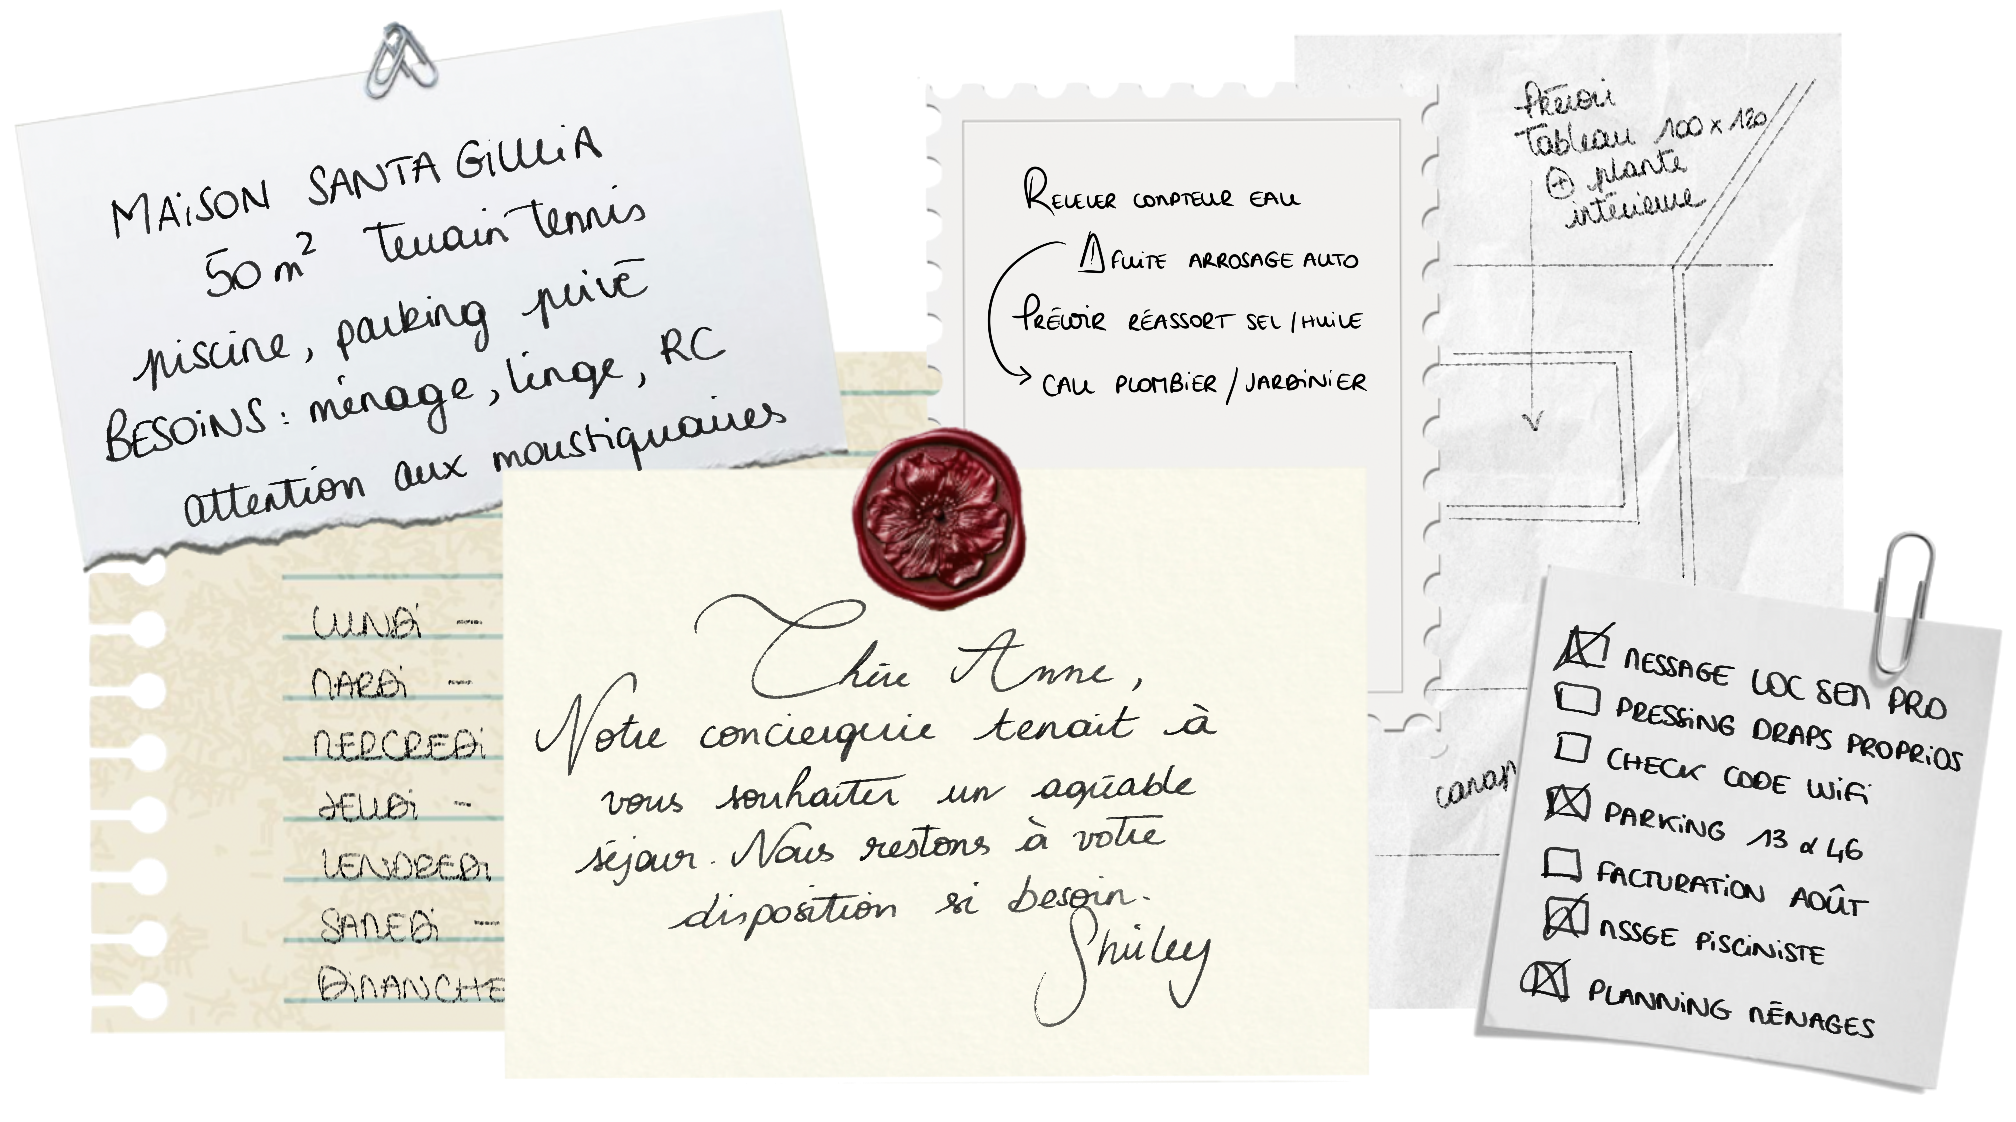 MAiSON SANTA GiULiA
50 m² terrain tennis
piscine, parking privé
BESOiNS : ménage, linge, RC
attention aux moustiquaires
LUNDi -
MARDi -
MERCREDi
JEUDi -
VENDREDi
SAMEDi -
DiMANCHE
RELEVER COMPTEUR EAU
⚠ FUiTE ARROSAGE AUTO
PRÉVOiR RÉASSORT SEL / HUiLE
CALL PLOMBiER / JARDiNiER
Prévoir
Tableau 100 x 120
⊕ plante
intérieure
canap
Chère Anne,
Notre conciergerie tenait à
vous souhaiter un agréable
séjour. Nous restons à votre
disposition si besoin.
Shirley
☒ MESSAGE LOC SEM PRO
☐ PRESSiNG DRAPS PROPRiOS
☐ CHECK CODE WiFi
☒ PARKiNG 13 & 46
☐ FACTURATiON AOÛT
☒ MSSGE PiSCiNiSTE
☒ PLANNiNG MÉNAGES